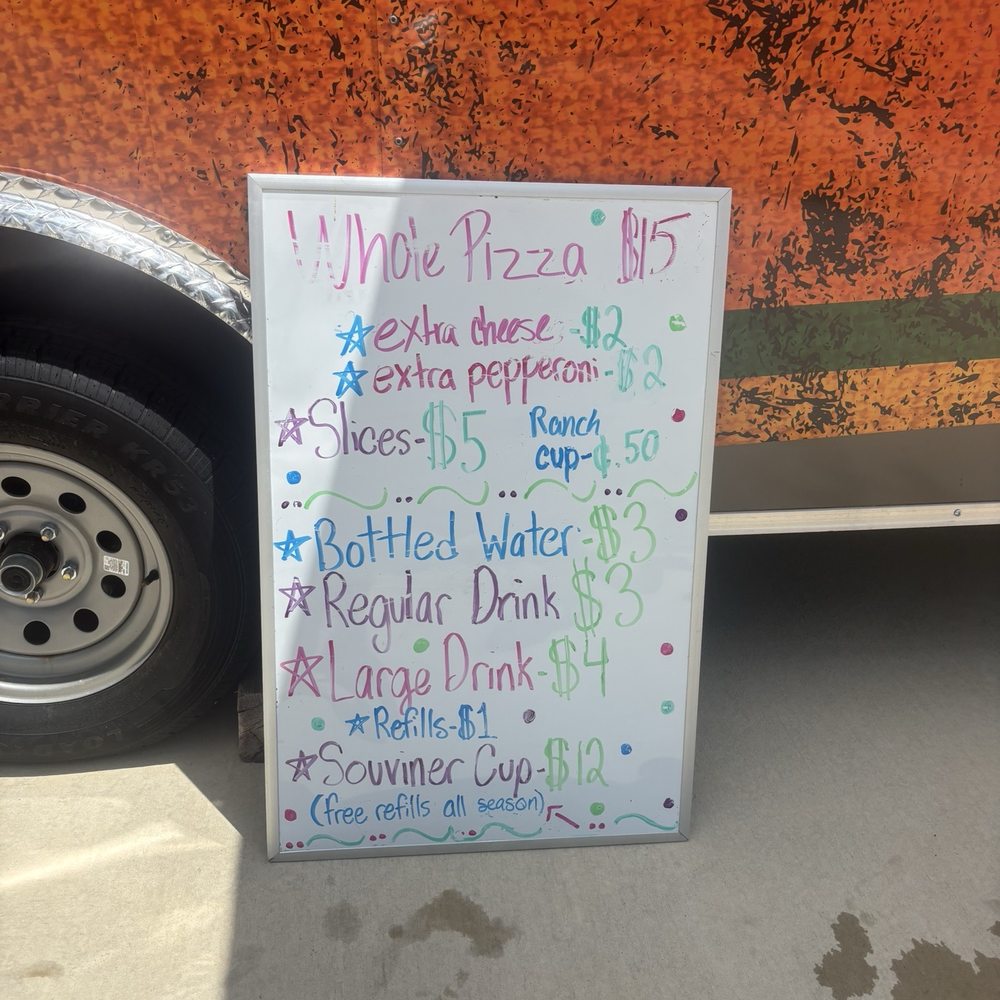 Whole Pizza $15
extra cheese -$2
extra pepperoni-$2
Slices-$5
Ranch
cup-¢.50
Bottled Water-$3
Regular Drink $3
Large Drink-$4
Refills-$1
Souviner Cup-$12
(free refills all season)